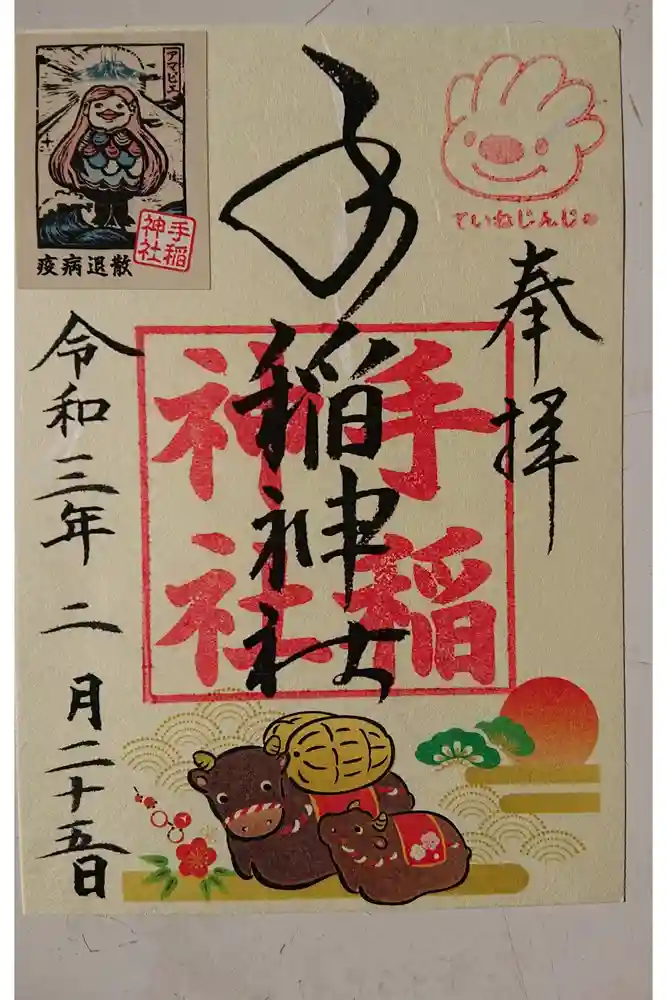 ていねじんじゃ
奉拝
手稲神社
手稲
神社
令和三年二月二十五日
アマビエ
手稲
神社
疫病退散